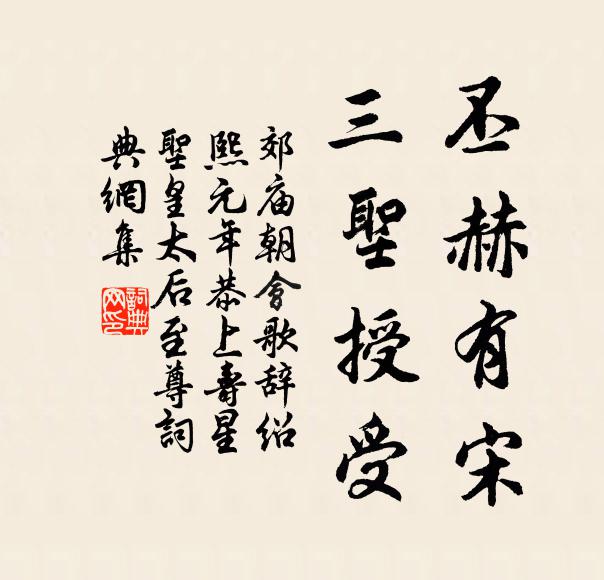 丕赫有宋
三聖授受
郊庙朝會歌辞绍
熙元年恭上壽星
聖皇太后至尊詞
典網集
詞典
网印